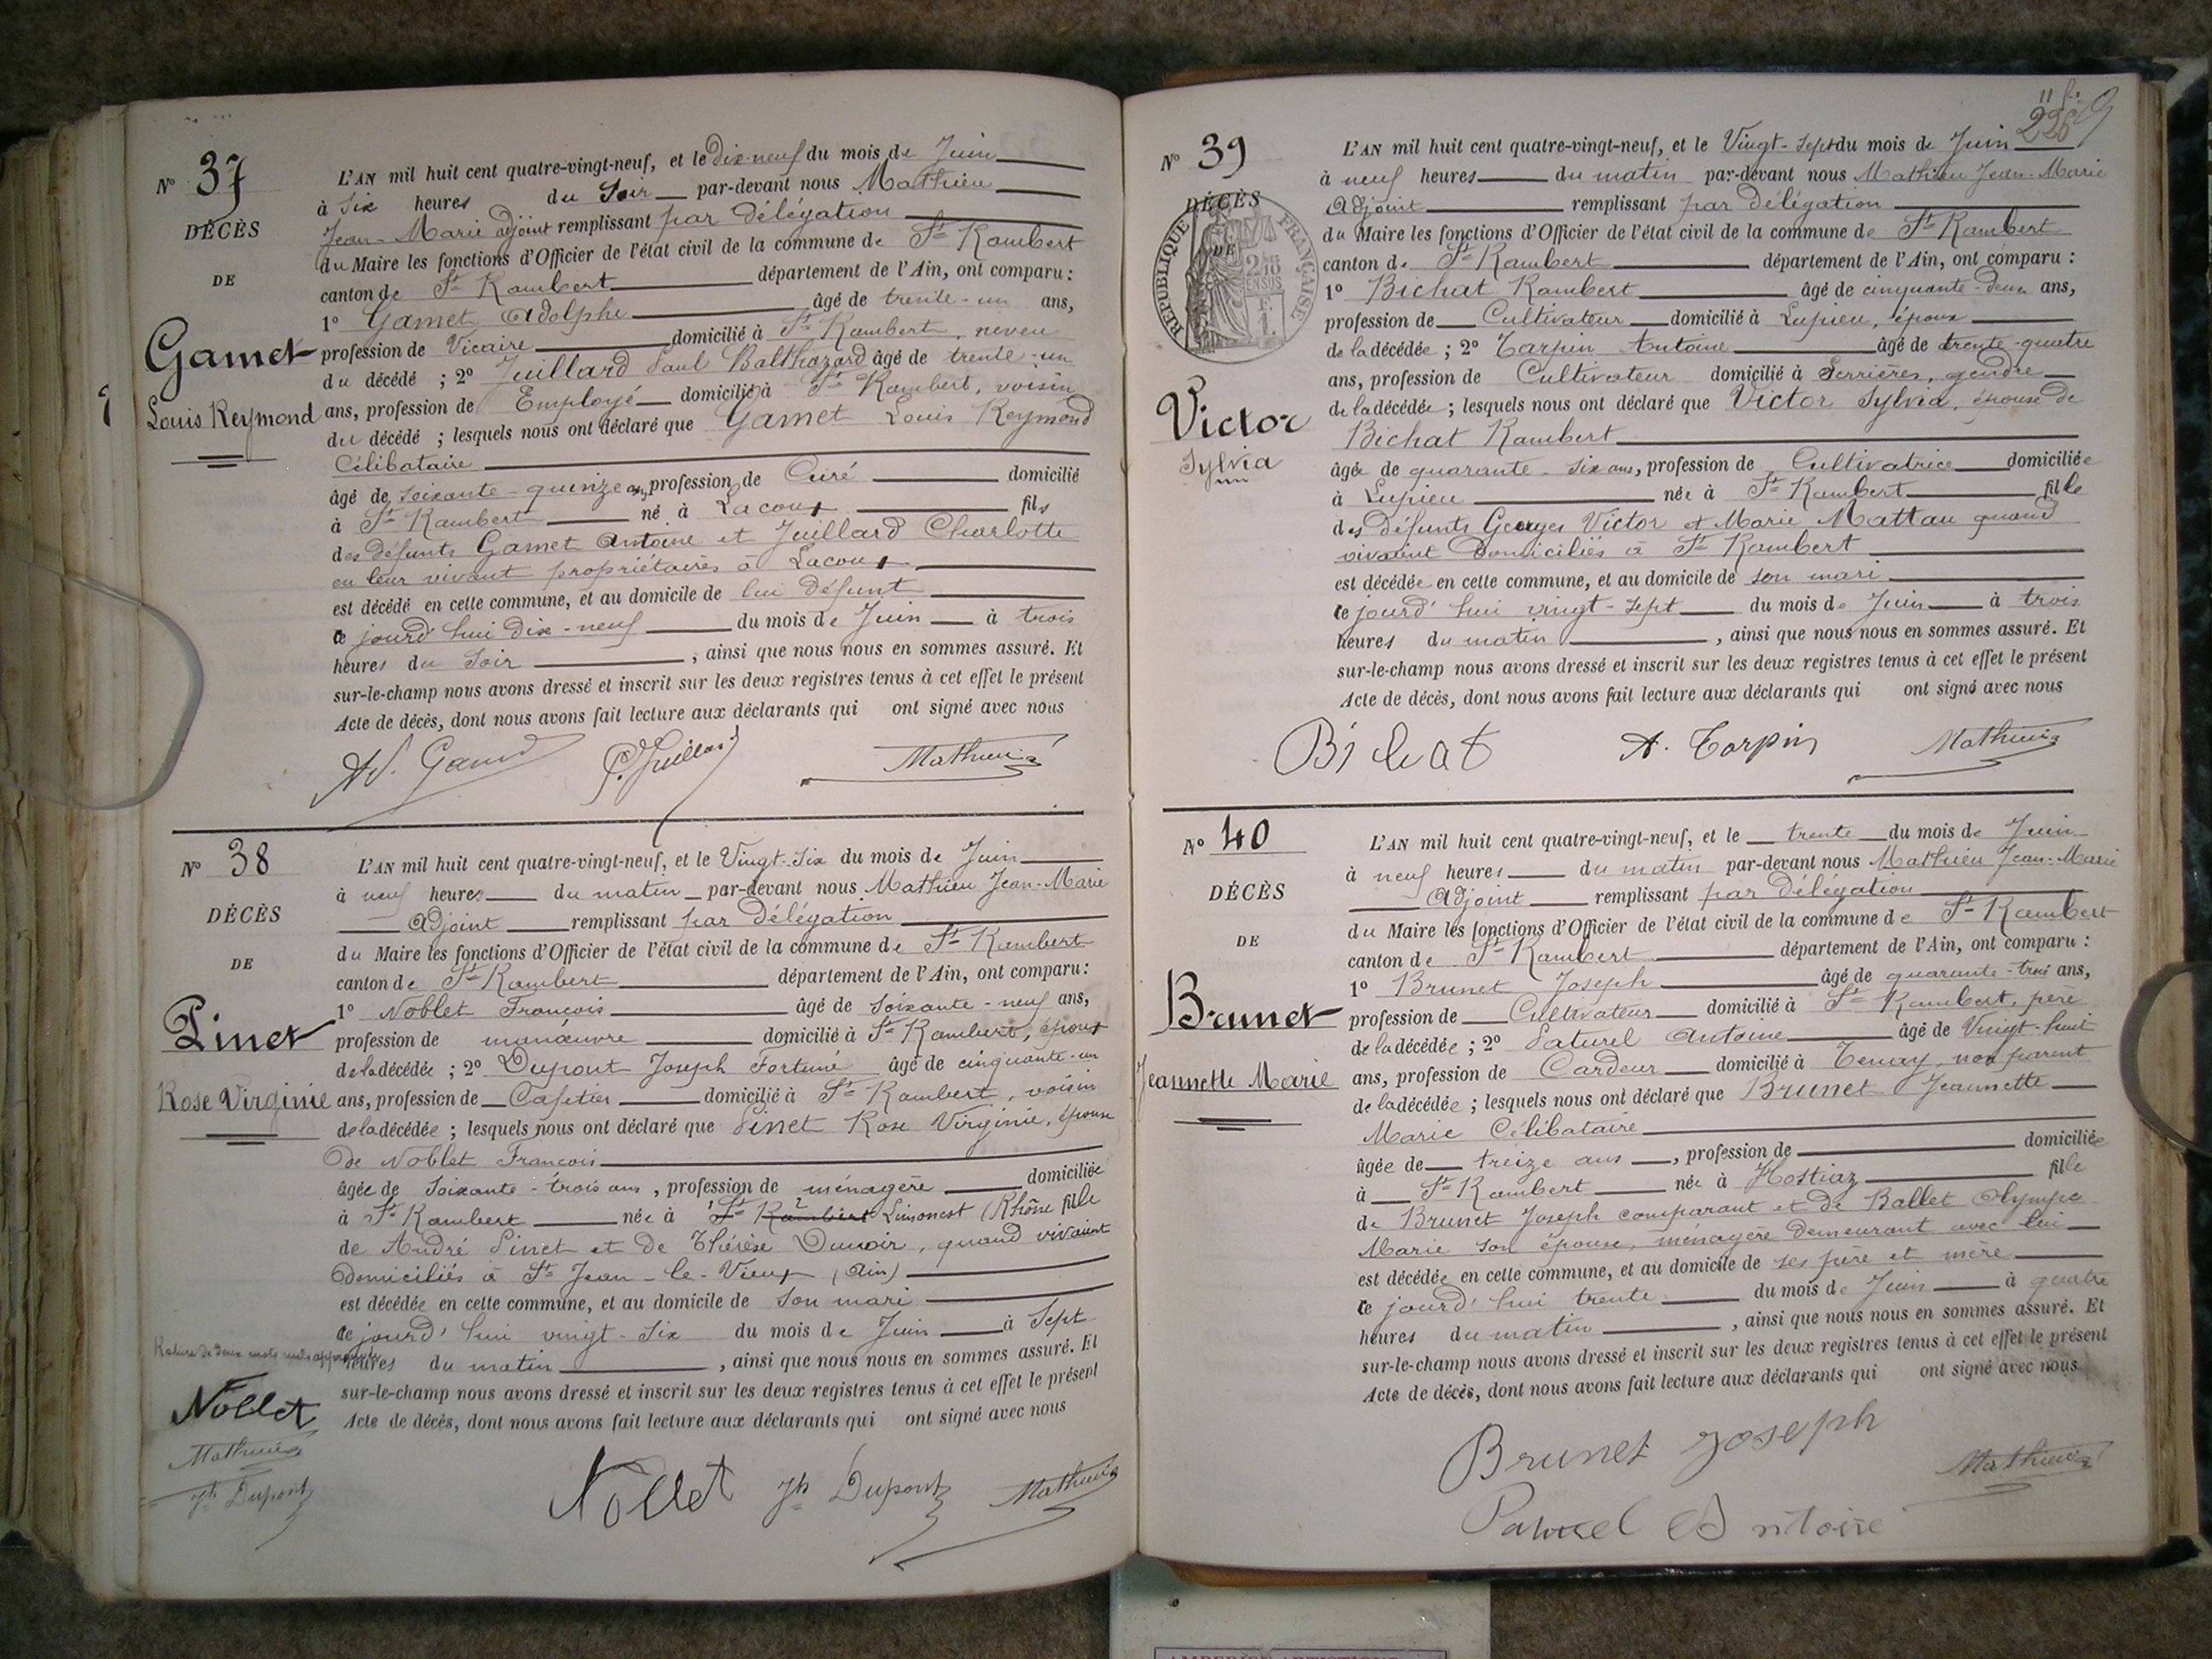 N° 37
DÉCÈS
DE
Gamet
Louis Reymond
L'AN mil huit cent quatre-vingt-neuf, et le Dix-neuf du mois de Juin
à six heures du Soir par-devant nous Mathieu
Jean-Marie adjoint remplissant par délégation
du Maire les fonctions d'Officier de l'état civil de la commune de St Rambert
canton de St Rambert département de l'Ain, ont comparu :
1° Gamet Adolphe âgé de trente-un ans,
profession de Vicaire domicilié à St Rambert, neveu
du décédé ; 2° Juillard Paul Balthazard âgé de trente-un
ans, profession de Employé domicilié à St Rambert, voisin
du décédé ; lesquels nous ont déclaré que Gamet Louis Reymond
Célibataire
âgé de soixante-quinze ans, profession de Curé domicilié
à St Rambert né à Lacoux fils
des défunts Gamet Antoine et Juillard Charlotte
en leur vivant propriétaires à Lacoux
est décédé en cette commune, et au domicile de lui défunt
ce jourd'hui Dix-neuf du mois de Juin à trois
heures du Soir, ainsi que nous nous en sommes assuré. Et
sur-le-champ nous avons dressé et inscrit sur les deux registres tenus à cet effet le présent
Acte de décès, dont nous avons fait lecture aux déclarants qui ont signé avec nous
Ad. Gamet P. Juillard Mathieu
N° 38
DÉCÈS
DE
Pinet
Rose Virginie
L'AN mil huit cent quatre-vingt-neuf, et le Vingt-six du mois de Juin
à neuf heures du matin par-devant nous Mathieu Jean-Marie
Adjoint remplissant par délégation
du Maire les fonctions d'Officier de l'état civil de la commune de St Rambert
canton de St Rambert département de l'Ain, ont comparu :
1° Noblet François âgé de soixante-neuf ans,
profession de manœuvre domicilié à St Rambert, époux
de la décédée ; 2° Dupont Joseph Fortuné âgé de cinquante-un
ans, profession de Cafetier domicilié à St Rambert, voisin
de la décédée ; lesquels nous ont déclaré que Pinet Rose Virginie, épouse
de Noblet François
âgée de soixante-trois ans, profession de ménagère domiciliée
à St Rambert née à St Rambert Limonest (Rhône fille
de André Pinet et de Thérèse Dunoir, quand vivaient
domiciliés à St Jean-le-Vieux (Ain)
est décédée en cette commune, et au domicile de son mari
ce jourd'hui vingt-six du mois de Juin à Sept
heures du matin, ainsi que nous nous en sommes assuré. Et
sur-le-champ nous avons dressé et inscrit sur les deux registres tenus à cet effet le présent
Acte de décès, dont nous avons fait lecture aux déclarants qui ont signé avec nous
Rature de deux mots nuls approuvée
Nollet
Mathieu
Jh Dupont
Nollet Jh Dupont Mathieu
N° 39
DÉCÈS
DE
RÉPUBLIQUE FRANÇAISE
Victor
Sylvia
L'AN mil huit cent quatre-vingt-neuf, et le Vingt-sept du mois de Juin
à neuf heures du matin par-devant nous Mathieu Jean-Marie
Adjoint remplissant par délégation
du Maire les fonctions d'Officier de l'état civil de la commune de St Rambert
canton de St Rambert département de l'Ain, ont comparu :
1° Bichat Rambert âgé de cinquante-deux ans,
profession de Cultivateur domicilié à Lupieu, époux
de la décédée ; 2° Tarpin Antoine âgé de trente-quatre
ans, profession de Cultivateur domicilié à Serrières, gendre
de la décédée ; lesquels nous ont déclaré que Victor Sylvia, épouse de
Bichat Rambert
âgée de quarante-six ans, profession de Cultivatrice domiciliée
à Lupieu née à St Rambert fille
des défunts Georges Victor et Marie Mattau quand
vivaient domiciliés à St Rambert
est décédée en cette commune, et au domicile de son mari
ce jourd'hui vingt-sept du mois de Juin à trois
heures du matin, ainsi que nous nous en sommes assuré. Et
sur-le-champ nous avons dressé et inscrit sur les deux registres tenus à cet effet le présent
Acte de décès, dont nous avons fait lecture aux déclarants qui ont signé avec nous
Bichat A. Tarpin Mathieu
N° 40
DÉCÈS
DE
Brunet
Jeannette Marie
L'AN mil huit cent quatre-vingt-neuf, et le trente du mois de Juin
à neuf heures du matin par-devant nous Mathieu Jean-Marie
Adjoint remplissant par délégation
du Maire les fonctions d'Officier de l'état civil de la commune de St Rambert
canton de St Rambert département de l'Ain, ont comparu :
1° Brunet Joseph âgé de quarante-trois ans,
profession de Cultivateur domicilié à St Rambert, père
de la décédée ; 2° Paturel Antoine âgé de Vingt-huit
ans, profession de Cardeur domicilié à Tenay, non parent
de la décédée ; lesquels nous ont déclaré que Brunet Jeannette
Marie Célibataire
âgée de treize ans, profession de domiciliée
à St Rambert née à Hostiaz fille
de Brunet Joseph comparant et de Ballet Olympe
Marie son épouse, ménagère demeurant avec lui
est décédée en cette commune, et au domicile de ses père et mère
ce jourd'hui trente du mois de Juin à quatre
heures du matin, ainsi que nous nous en sommes assuré. Et
sur-le-champ nous avons dressé et inscrit sur les deux registres tenus à cet effet le présent
Acte de décès, dont nous avons fait lecture aux déclarants qui ont signé avec nous.
Brunet Joseph Mathieu
Paturel Antoine